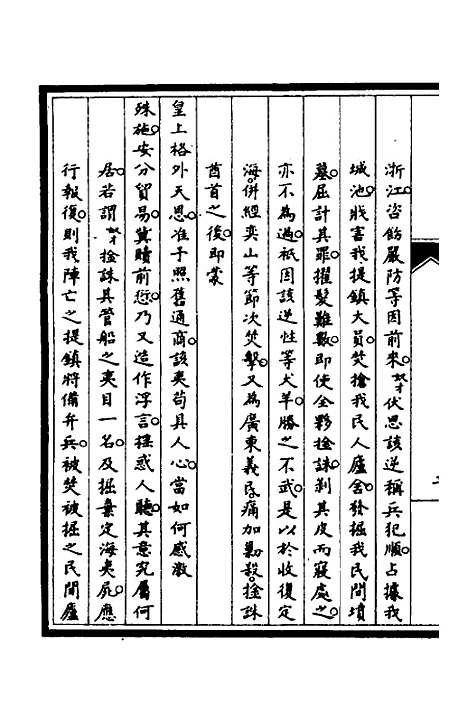 浙江咨飭嚴防等因前來奴才伏思該逆稱兵犯順占據我
城池戕害我提鎮大員焚搶我民人廬舍發掘我民間墳
墓屈計其罪擢髮難數即使全夥擒誅剝其皮而寢處之
亦不為過祇因該逆性等犬羊勝之不武是以於收復定
海併經奕山等節次焚擊又為廣東義民痛加勦殺擒殊
酋首之後即蒙
皇上格外天恩准予照舊通商該夷苟具人心當如何感激
殊施安分貿易冀贖前愆乃又造作浮言搖惑人聽其意究屬何
居若謂奴才擒誅其管船之夷目一名及掘棄定海夷屍應
行報復則我陣亡之提鎮將備弁兵被焚被掘之民間廬